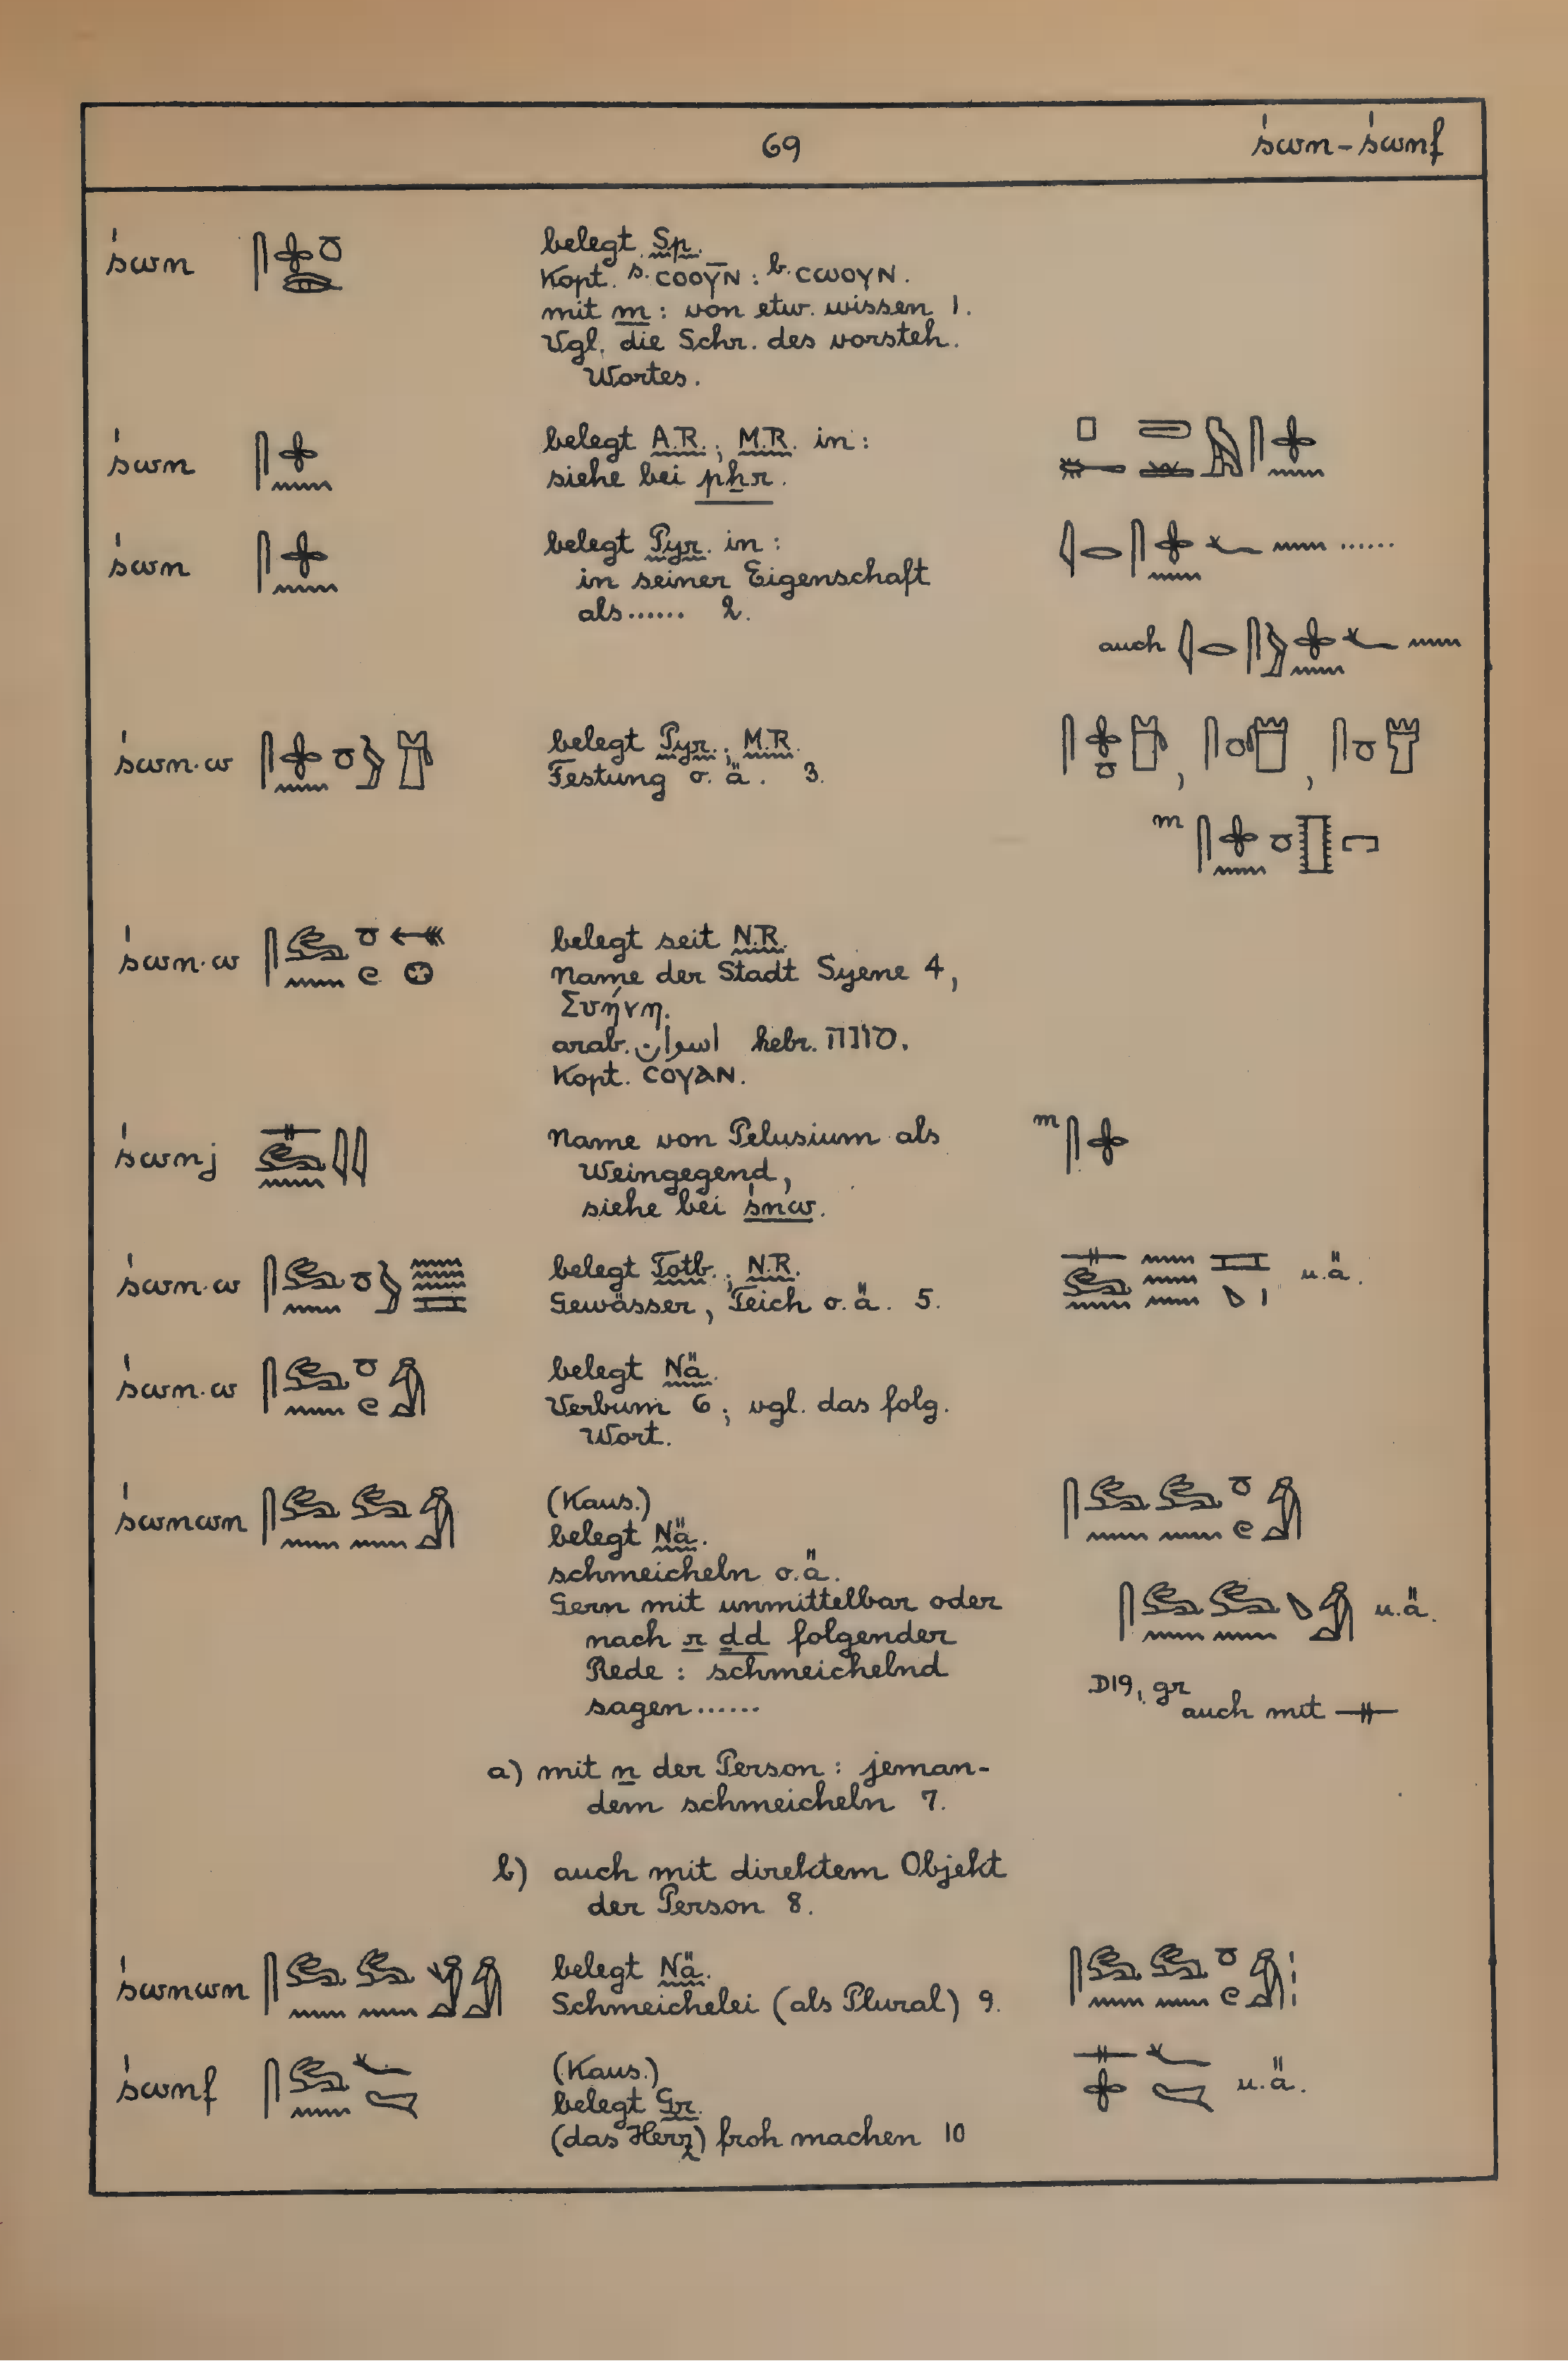 69 śwn – śwnf
śwn belegt Sp.
Kopt. s. ⲥⲟⲟⲩ̄ⲛ : b. ⲥⲱⲟⲩⲛ.
mit m : von etw. wissen 1.
Vgl. die Schr. des vorsteh.
Wortes.
śwn belegt A.R.; M.R. in :
siehe bei pẖr.
śwn belegt Pyr. in :
in seiner Eigenschaft
als...... 2.
auch
śwn·w belegt Pyr.; M.R.
Festung o. ä. 3.
m
śwn·w belegt seit N.R.
Name der Stadt Syene 4,
Συήνη.
arab. اسوان hebr. סונה.
Kopt. ⲥⲟⲩⲁⲛ.
śwnj Name von Pelusium als m
Weingegend,
siehe bei śnw.
śwn·w belegt Totb.; N.R. u.ä.
Gewässer, Teich o. ä. 5.
śwn·w belegt Nä.
Verbum 6; vgl. das folg.
Wort.
śwnwn (Kaus.)
belegt Nä.
schmeicheln o.ä.
Gern mit unmittelbar oder u.ä.
nach r ḏd folgender
Rede : schmeichelnd
sagen...... D19, gr auch mit
a) mit n der Person : jeman-
dem schmeicheln 7.
b) auch mit direktem Objekt
der Person 8.
śwnwn belegt Nä.
Schmeichelei (als Plural) 9.
śwnf (Kaus.)
belegt Gr. u.ä.
(das Herz) froh machen 10